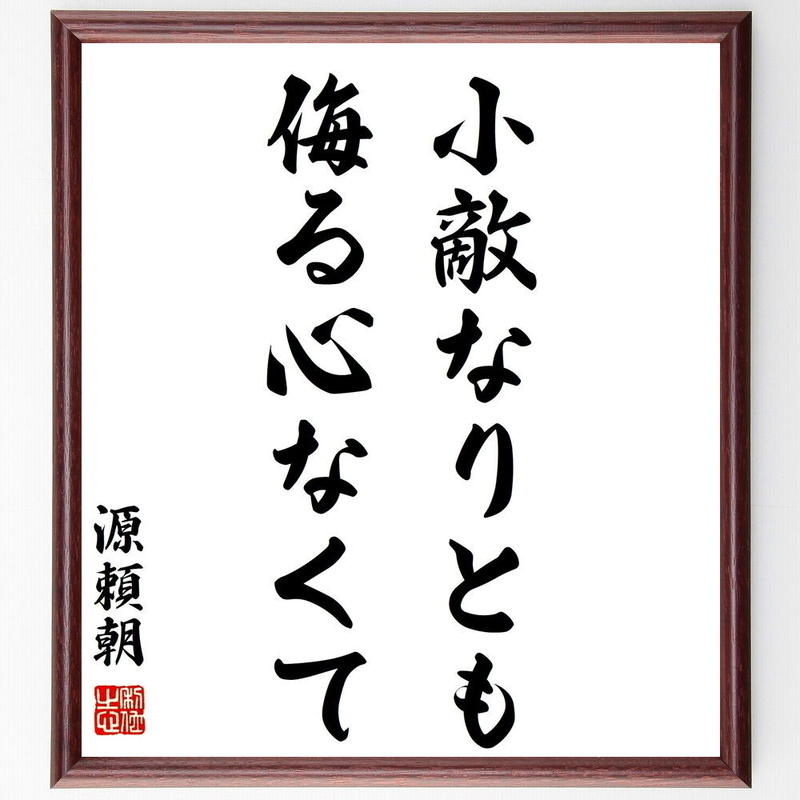 小敵なりとも
侮る心なくて
源頼朝